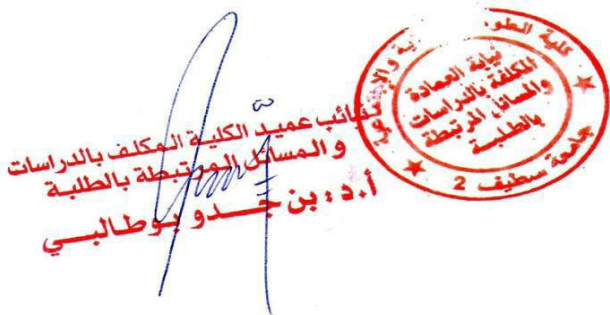 نائب عميد الكلية المكلف بالدراسات
و المسائل المرتبطة بالطلبة
أ.د : بن جدو بوطالبي
كلية
نيابة العمادة
المكلفة بالدراسات
والمسائل المرتبطة
بالطلبة
جامعة سطيف 2